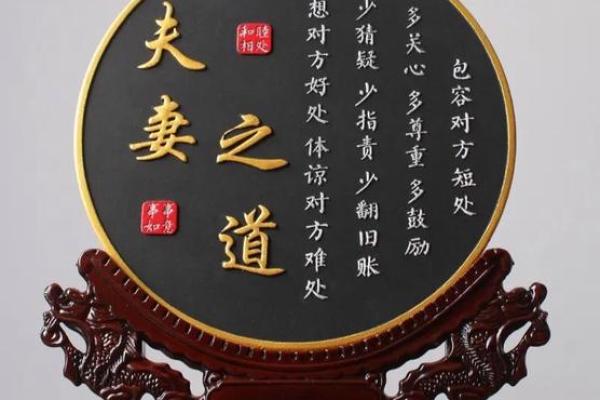 包容对方短处
多关心 多尊重 多鼓励
少猜疑 少指责 少翻旧账
想对方好处 体谅对方难处
和睦
相处
夫妻
之道
事事
如意